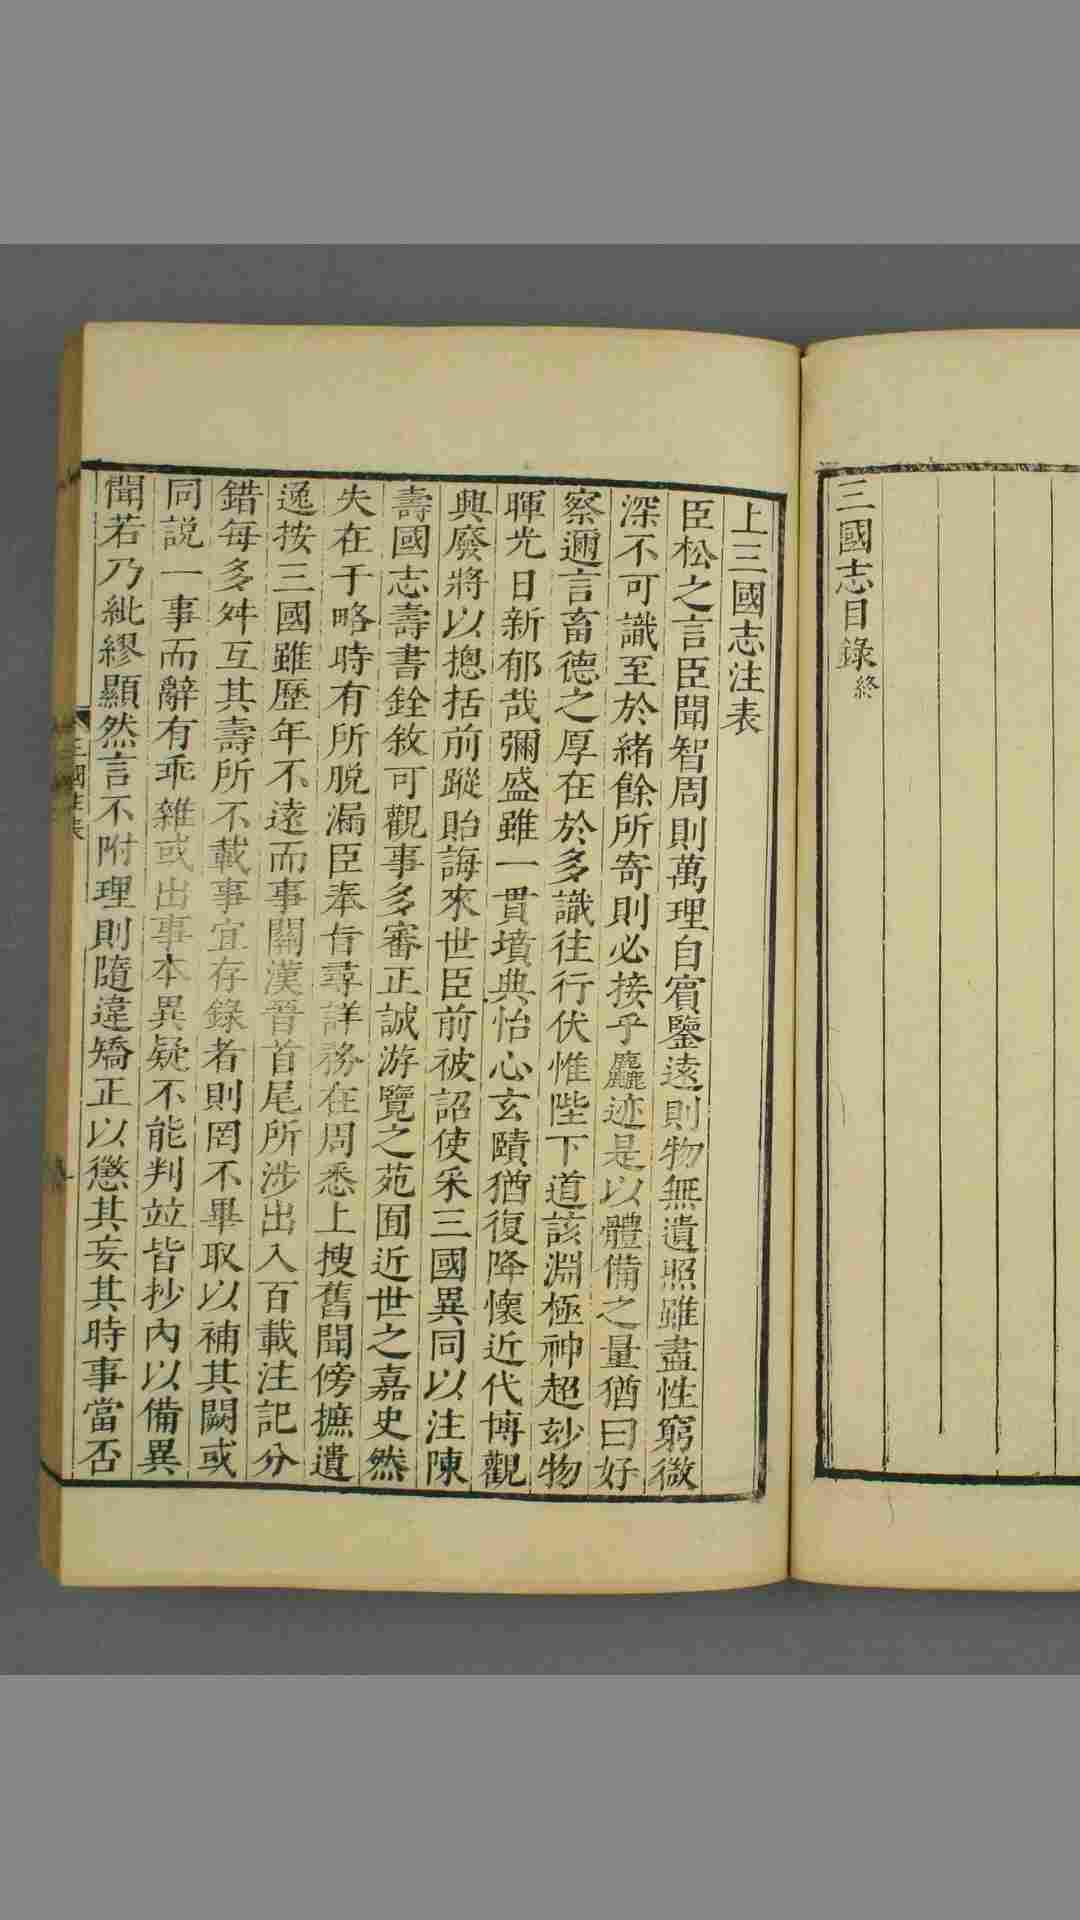 三國志目錄終
上三國志注表
臣松之言臣聞智周則萬理自賓鑒遠則物無遺照雖盡性窮微
深不可識至於緒餘所寄則必接乎麤迹是以體備之量猶曰好
察邇言畜德之厚在於多識往行伏惟陛下道該淵極神超妙物
暉光日新郁哉彌盛雖一貫墳典怡心玄賾猶復降懷近代博觀
興廢將以摠括前蹤貽誨來世臣前被詔使采三國異同以注陳
壽國志壽書銓敘可觀事多審正誠游覽之苑囿近世之嘉史然
失在于略時有所脫漏臣奉旨尋詳務在周悉上搜舊聞傍摭遺
逸按三國雖歷年不遠而事關漢晉首尾所涉出入百載注記分
錯每多舛互其壽所不載事宜存錄者則罔不畢取以補其闕或
同說一事而辭有乖雜或出事本異疑不能判竝皆抄內以備異
聞若乃紕繆顯然言不附理則隨違矯正以懲其妄其時事當否